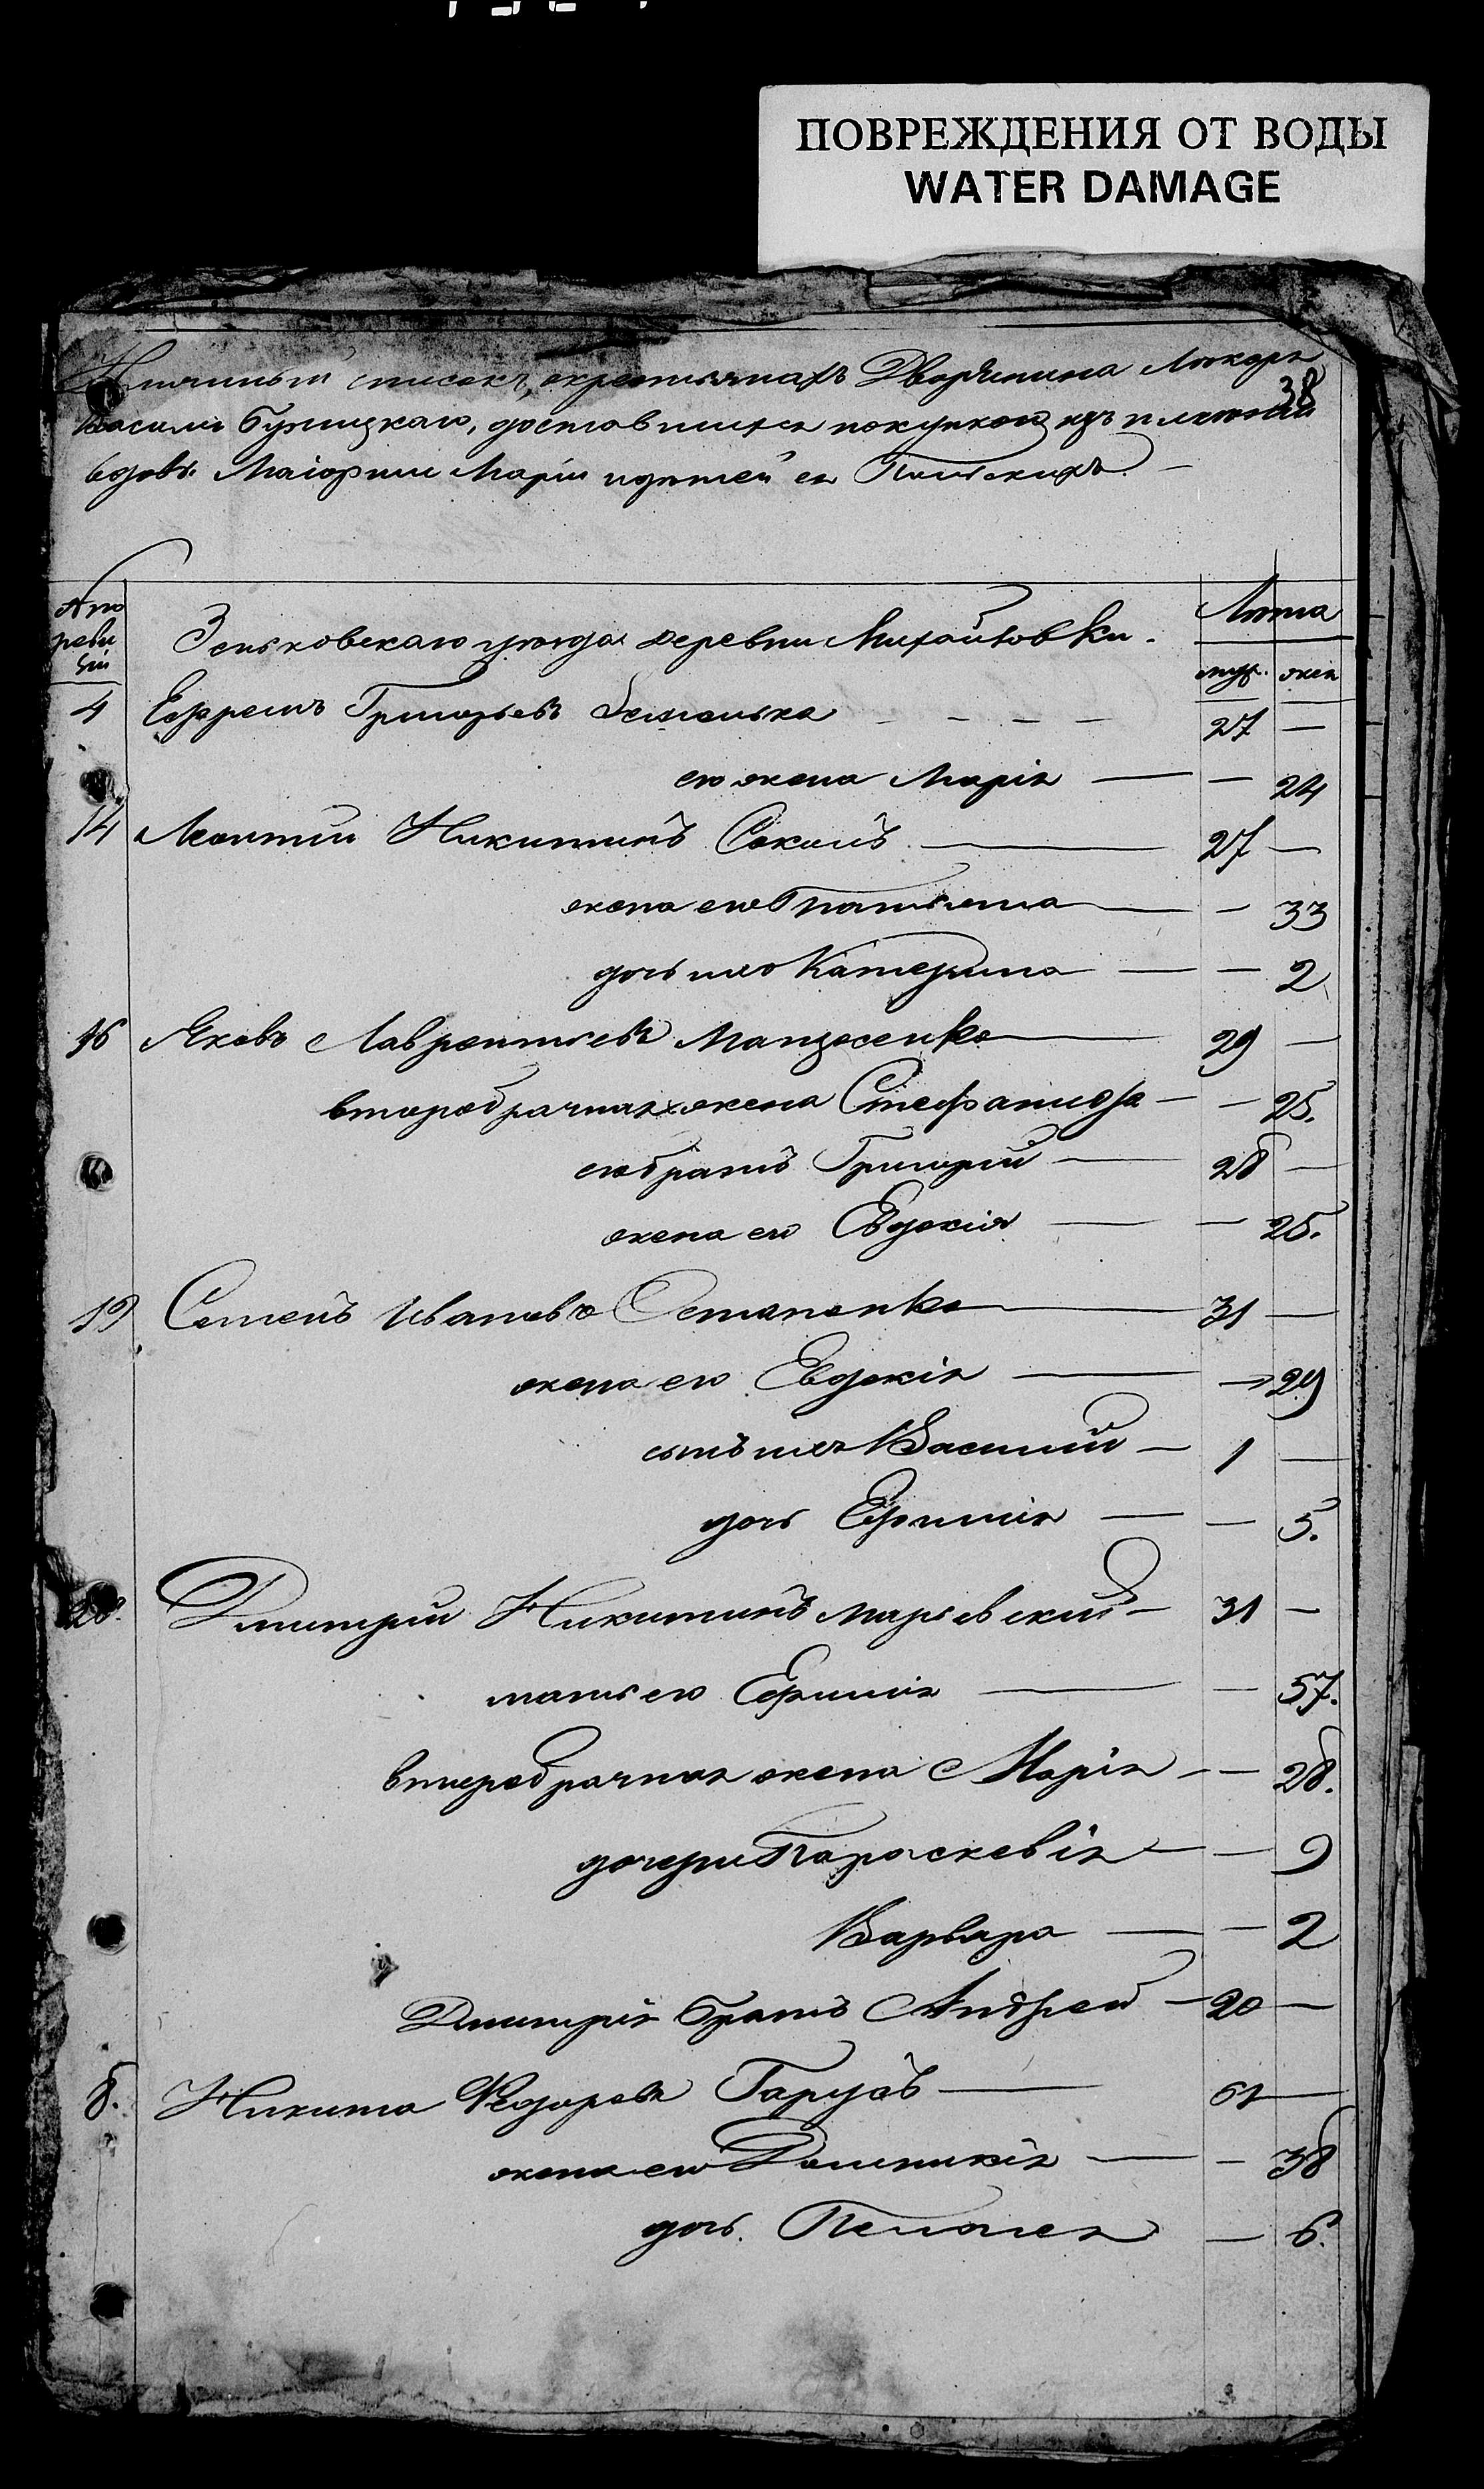 ПОВРЕЖДЕНИЯ ОТ ВОДЫ
WATER DAMAGE
38
Именный списокъ, о крестьянахъ Дворянина Лѣкаря
Василия доставшихся покупкою изъ имѣнія
вдовы Маіорши Маріи и дѣтей ея
№ по
реви
зіи
Зеньковскаго уѣзда деревни Михайловки.
Лѣта
муж. жен
4 Ефремъ Григорьевъ 27 —
его жена Марія — — 24
14 Леонтій Никитинъ Соколъ — 27 —
жена его Татьяна — — 33
дочь ихъ Катерина — — 2
16 Яковъ Лаврентьевъ — 29 —
второбрачная жена Стефанида — — 25.
его братъ Григорій — 28 —
жена его Евдокія — — 25.
19 Семенъ Ивановъ Остапенко — 31 —
жена его Евдокія — — 29
сынъ ихъ Василій — 1 —
дочь Ефимія — — 5.
20. Дмитрій Никитинъ Марьевскій — 31 —
мать его Ефимія — — 57.
второбрачная жена Марія — — 28.
дочери Параскевія — — 9
Варвара — — 2
Дмитрія братъ Андрей — 20 —
8. Никита Федоровъ — 61 —
жена его Домникія — — 38
дочь Пелагея — 6.